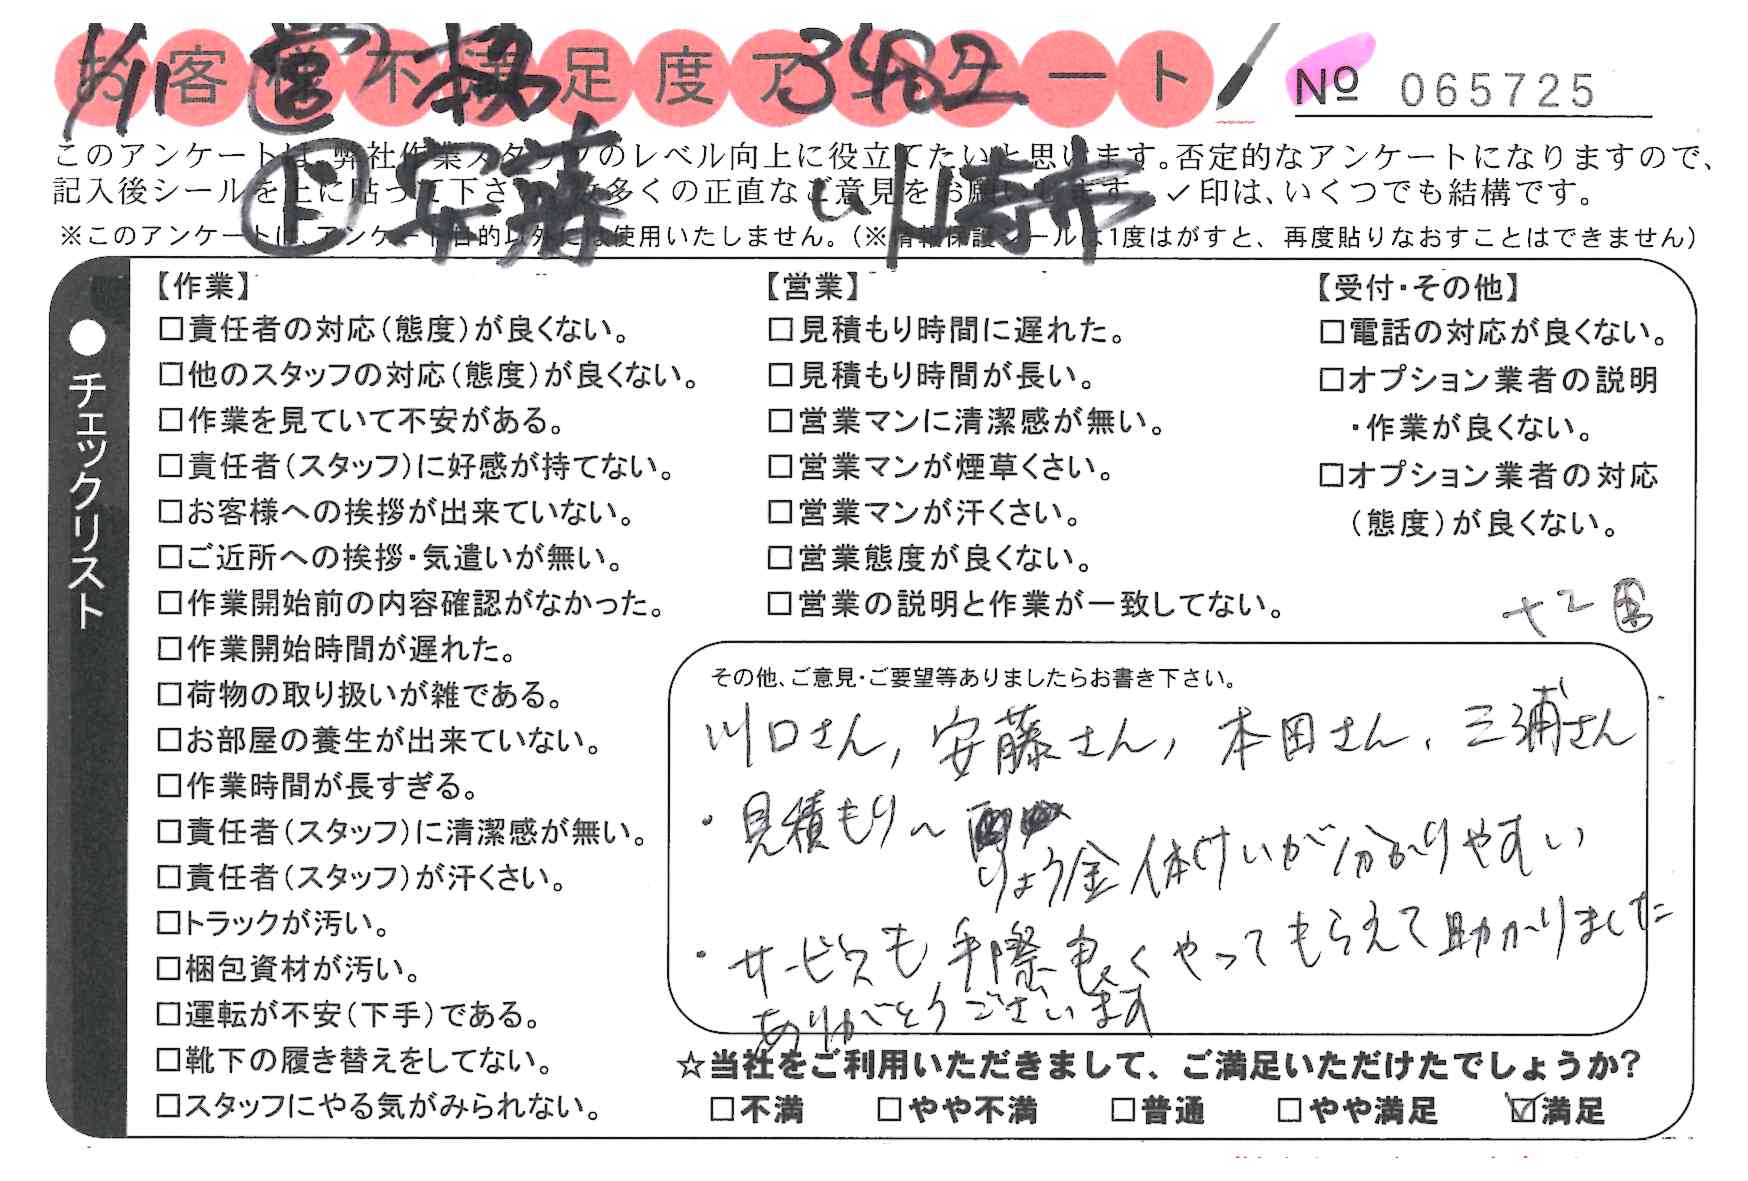 お客様不満足度アンケート
1/11 営 3482
ト 安藤 川崎市
№ 065725
このアンケートは、弊社作業スタッフのレベル向上に役立てたいと思います。否定的なアンケートになりますので、
記入後シールを上に貼って下さい。数多くの正直なご意見をお願いします。✓印は、いくつでも結構です。
※このアンケートは、アンケート目的以外には使用いたしません。（※情報保護シールは1度はがすと、再度貼りなおすことはできません）
●チェックリスト
【作業】
□責任者の対応（態度）が良くない。
□他のスタッフの対応（態度）が良くない。
□作業を見ていて不安がある。
□責任者（スタッフ）に好感が持てない。
□お客様への挨拶が出来ていない。
□ご近所への挨拶・気遣いが無い。
□作業開始前の内容確認がなかった。
□作業開始時間が遅れた。
□荷物の取り扱いが雑である。
□お部屋の養生が出来ていない。
□作業時間が長すぎる。
□責任者（スタッフ）に清潔感が無い。
□責任者（スタッフ）が汗くさい。
□トラックが汚い。
□梱包資材が汚い。
□運転が不安（下手）である。
□靴下の履き替えをしてない。
□スタッフにやる気がみられない。
【営業】
□見積もり時間に遅れた。
□見積もり時間が長い。
□営業マンに清潔感が無い。
□営業マンが煙草くさい。
□営業マンが汗くさい。
□営業態度が良くない。
□営業の説明と作業が一致してない。
【受付・その他】
□電話の対応が良くない。
□オプション業者の説明
・作業が良くない。
□オプション業者の対応
（態度）が良くない。
その他、ご意見・ご要望等ありましたらお書き下さい。
川口さん, 安藤さん, 本田さん、三浦さん
・見積もり〜
りょう金体けいが分かりやすい
・サービスも手際良くやってもらえて助かりました
ありがとうございます
☆当社をご利用いただきまして、ご満足いただけたでしょうか？
□不満 □やや不満 □普通 □やや満足 ☑満足